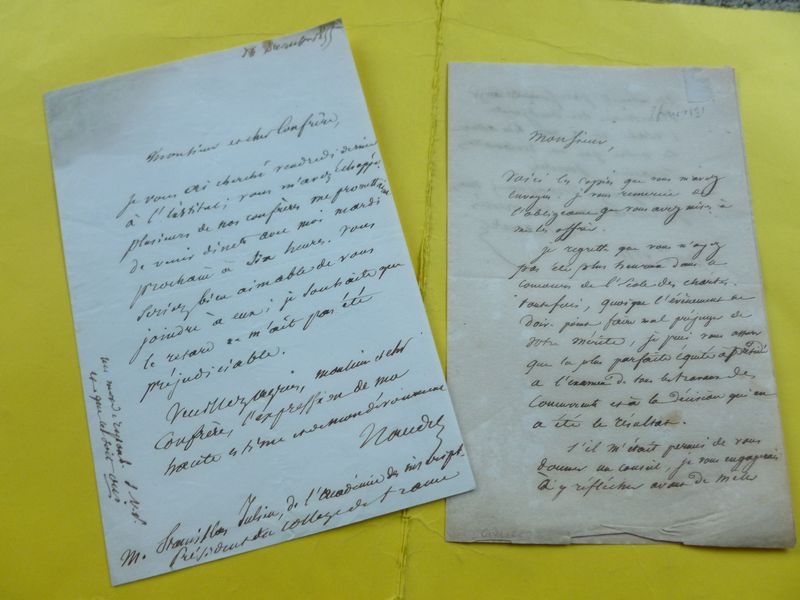 Décembre 1855
Monsieur et cher Confrère,
Je vous ai cherché vendredi dernier
à l'Institut ; vous m'avez échappé.
plusieurs de nos confrères me promettent
de venir dîner avec moi mardi
prochain à six heures. Vous
seriez bien aimable de vous
joindre à eux ; je souhaite que
le retard ne m'ait pas été
préjudiciable.
Veuillez agréer, monsieur et cher
Confrère, l'expression de ma
haute estime et de mon dévouement
Naudet
M. Stanislas Julien, de l'Académie des inscript.
Président du Collège de France
un mot de réponse S.V.P.
et que ce soit oui
Monsieur,
Voici les copies que vous m'avez
envoyées. je vous remercie de
l'obligeance que vous avez mise à
me les offrir.
Je regrette que vous n'ayez
pas été plus heureux dans le
concours de l'école des chartes.
toutefois, quoique l'événement ne
doive point faire mal préjuger de
votre mérite, je puis vous assurer
que la plus parfaite équité a présidé
à l'examen de tous les travaux des
concurrents et à la décision qui en
a été le résultat.
S'il m'était permis de vous
donner un conseil, je vous engagerais
à y réfléchir avant de